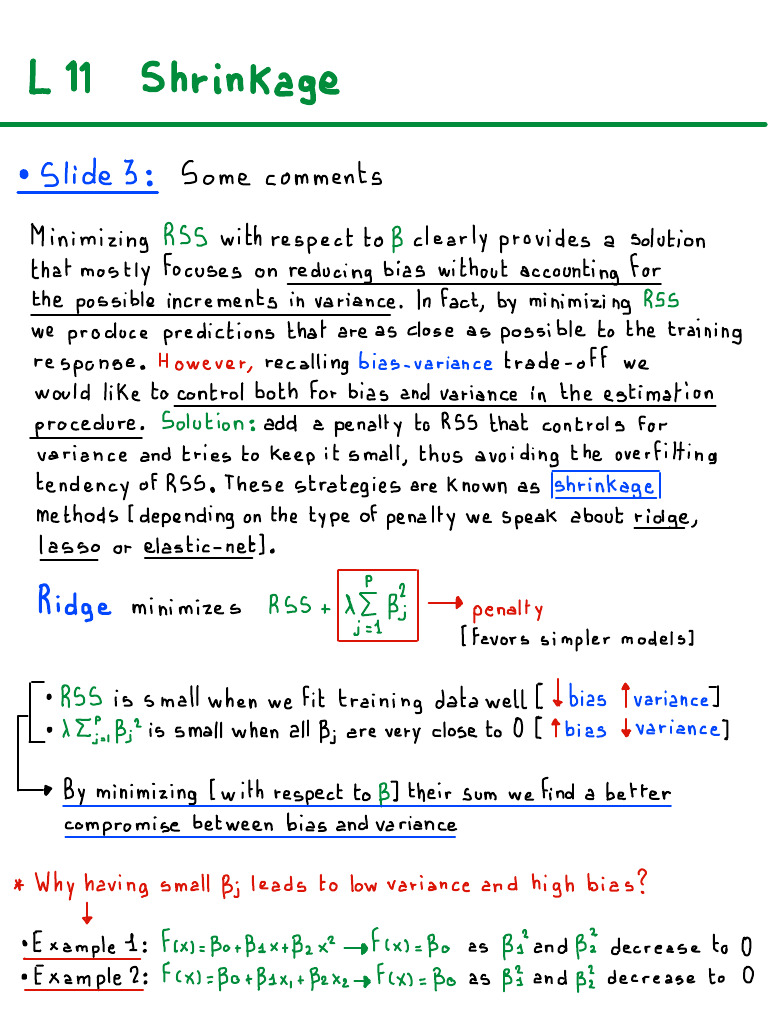 L 11 Shrinkage
• Slide 3: Some comments
Minimizing RSS with respect to β clearly provides a solution
that mostly focuses on reducing bias without accounting for
the possible increments in variance. In fact, by minimizing RSS
we produce predictions that are as close as possible to the training
response. However, recalling bias-variance trade-off we
would like to control both for bias and variance in the estimation
procedure. Solution: add a penalty to RSS that controls for
variance and tries to keep it small, thus avoiding the overfitting
tendency of RSS. These strategies are known as shrinkage
methods [depending on the type of penalty we speak about ridge,
lasso or elastic-net].
Ridge minimizes RSS + λ∑_{j=1}^{p} β_j² → penalty
[favors simpler models]
• RSS is small when we fit training data well [↓bias ↑variance]
• λ∑_{j=1}^{p} β_j² is small when all β_j are very close to 0 [↑bias ↓variance]
→ By minimizing [with respect to β] their sum we find a better
compromise between bias and variance
* Why having small β_j leads to low variance and high bias?
• Example 1: f(x)=β₀+β₁x+β₂x² → f(x)=β₀ as β₁² and β₂² decrease to 0
• Example 2: f(x)=β₀+β₁x₁+β₂x₂ → f(x)=β₀ as β₁² and β₂² decrease to 0